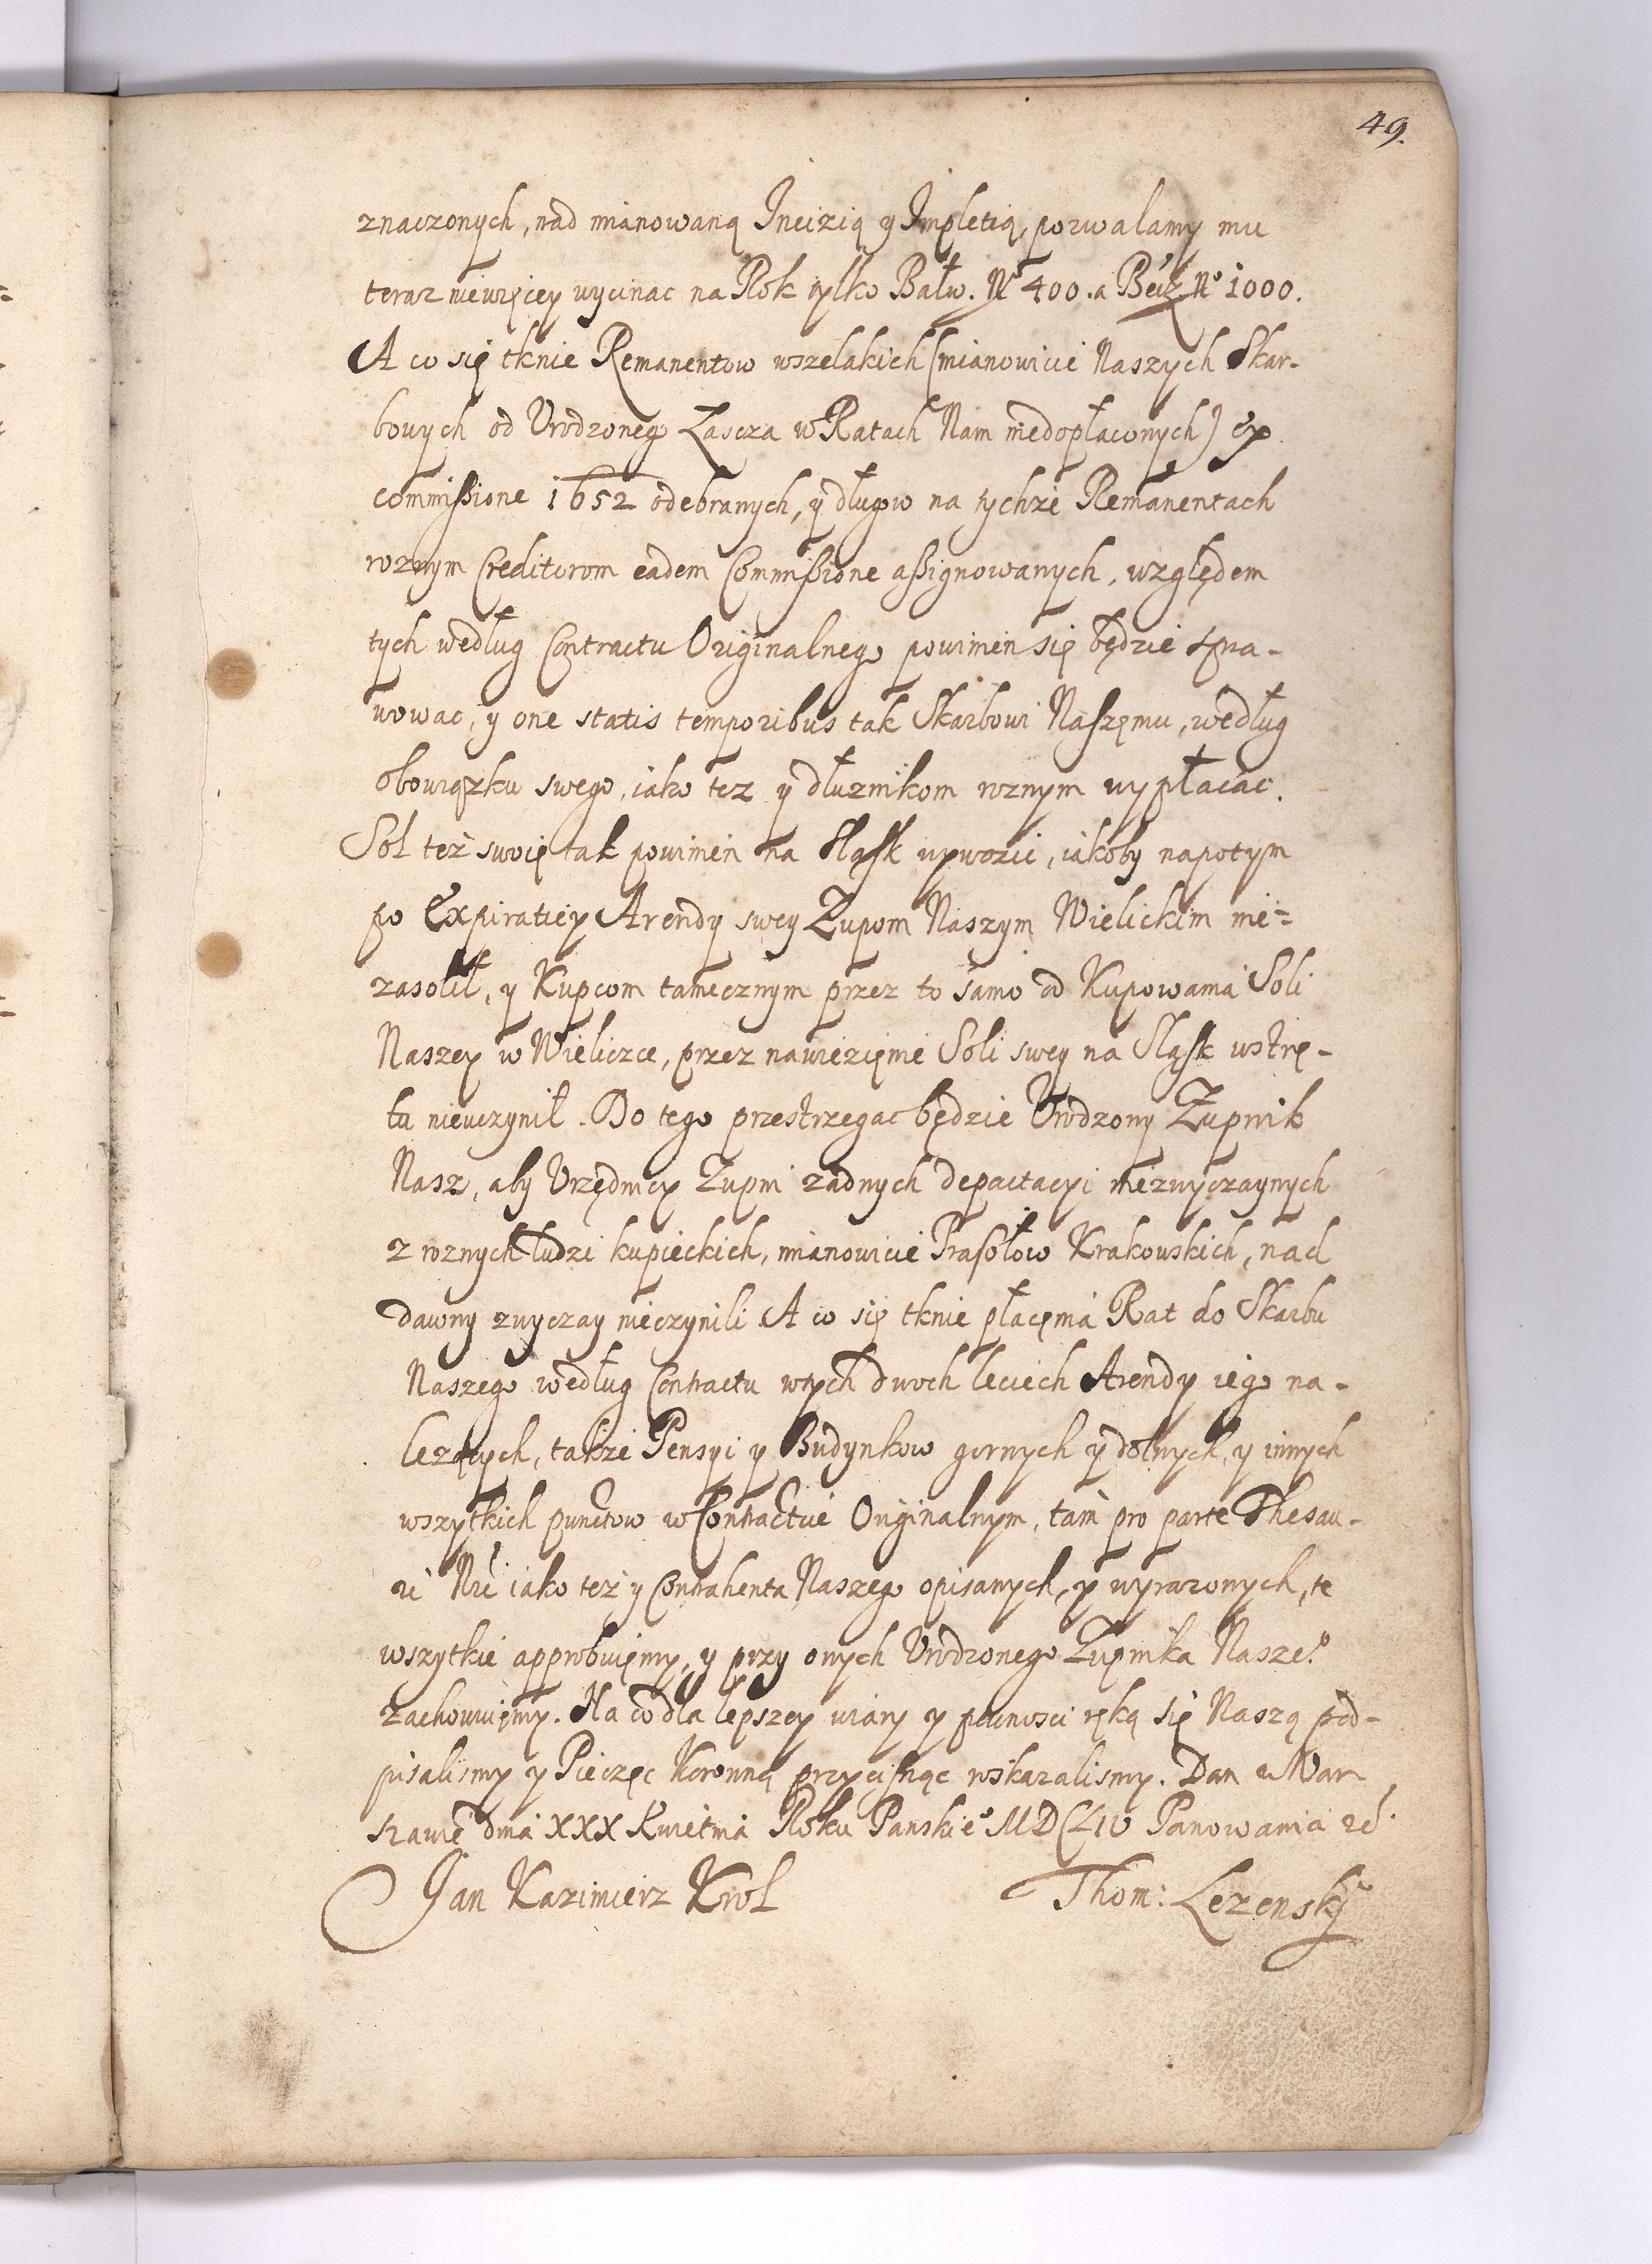 49.
znaczonych, nad mianowaną Incizią y Impletią, pozwalamy mu
teraz niewięcey wycinac na Rok tylko Bałw. No 400. a Becz. No 1000.
A co się tknie Remanentow wszelakich (mianowicie Naszych Skar-
bowych od Urodzonego Lascza w Ratach Nam niedopłaconych) ex
commissione 1652 odebranych, y długow na tychże Remanentach
roznym Creditorom eadem Commissione assignowanych, względem
tych według Contractu Originalnego powinien się będzie spra-
wowac, y one statis temporibus tak Skarbowi Naszęmu, według
obowiązku swego, iako tez y dłuznikom roznym wypłacac.
Sol też swoię tak powinien na Sląsk wywozic, iakoby napotym
po Expiratiey Arendy swey Zupom Naszym Wielickim nie=
zasolił, y Kupcom tamecznym przez to samo od Kupowania Soli
Naszey w Wieliczce, przez nawiezięnie Soli swey na Sląsk wstrę-
tu nieuczynił. Do tego przestrzegac będzie Urodzony Zupnik
Nasz, aby Urzędnicy Zupni zadnych depactacyi niezwyczaynych
z roznych ludzi kupieckich, mianowicie Prasołow Krakowskich, nad
dawny zwyczay nieczynili. A co się tknie płacęnia Rat do Skarbu
Naszego według Contractu wtych dwoch leciech Arendy iego na-
lezących, także Pensyi y Budynkow gornych y dolnych, y innych
wszytkich punctow w Contractcie Originalnym, tam pro parte Thesau-
ri Nri iako też y Contrahenta Naszego opisanych, y wyrazonych, te
wszytkie approbuięmy, y przy onych Urodzonego Zupnika Nasze.o
zachowuięmy. Na co dla lepszey wiary y pewnosci ręką się Naszą pod-
pisalismy y Pieczęc Koronną przycisnąc roskazalismy. Dan w War
szawie dnia XXX Kwietnia Roku Panskie.o MDCLIV Panowania
Jan Kazimierz Krol Thom: Lezensky